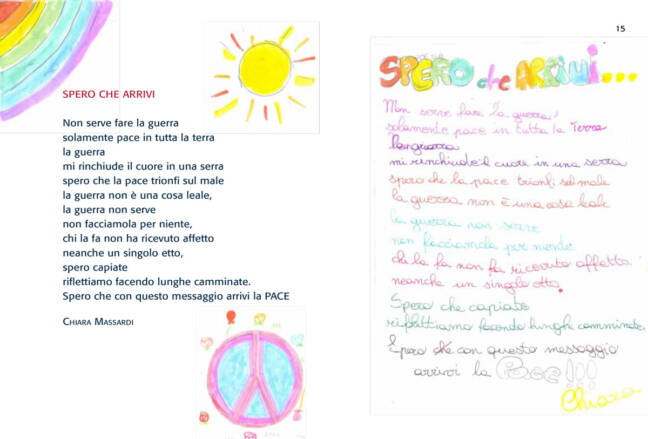 SPERO CHE ARRIVI
Non serve fare la guerra
solamente pace in tutta la terra
la guerra
mi rinchiude il cuore in una serra
spero che la pace trionfi sul male
la guerra non è una cosa leale,
la guerra non serve
non facciamola per niente,
chi la fa non ha ricevuto affetto
neanche un singolo etto,
spero capiate
riflettiamo facendo lunghe camminate.
Spero che con questo messaggio arrivi la PACE
CHIARA MASSARDI
15
SPERO che ARRIVI...
Non serve fare la guerra,
solamente pace in tutta la Terra
la guerra
mi rinchiude il cuore in una serra
spero che la pace trionfi sul male
la guerra non è una cosa leale
la guerra non serve
non facciamola per niente
chi la fa non ha ricevuto affetto
neanche un singolo etto.
Spero che capiate
riflettiamo facendo lunghe camminate.
Spero che con questo messaggio
arrivi la Pace!!!
Chiara